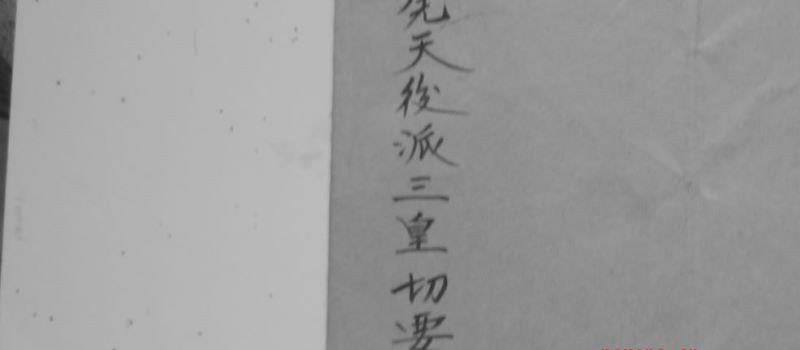 先天後派三皇切要